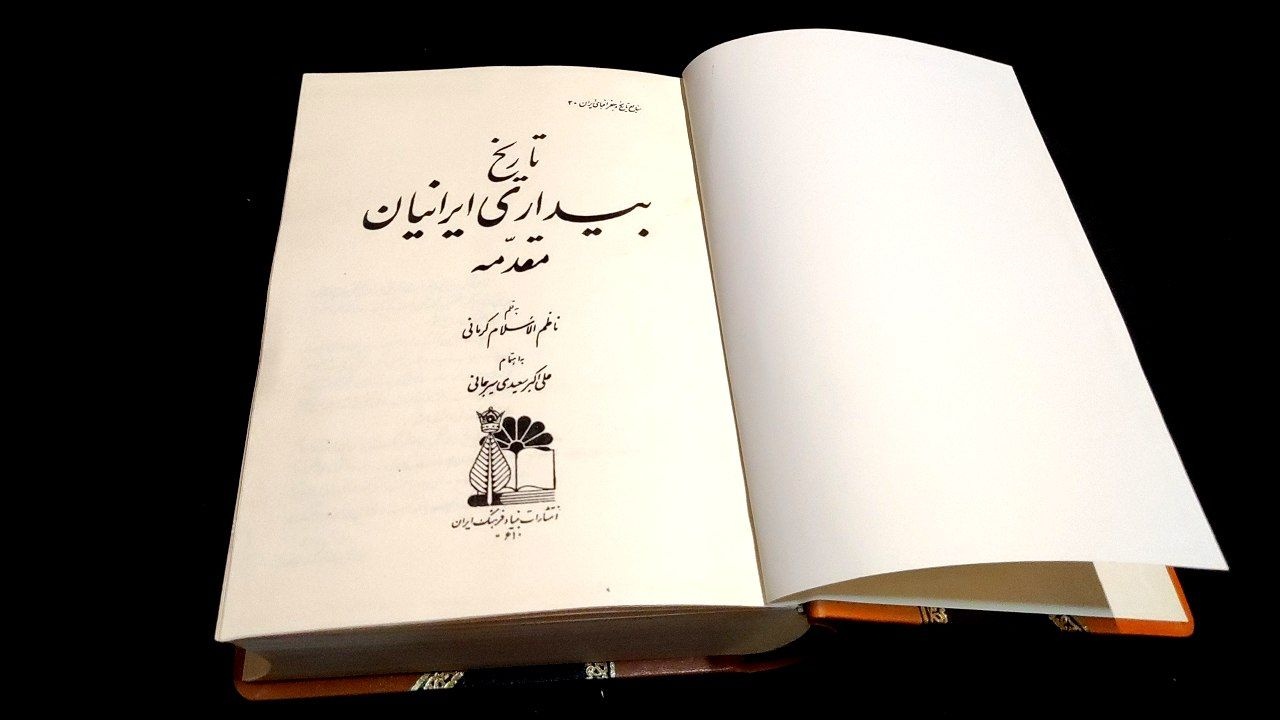 منابع تاریخ و جغرافیای ایران ۲۰
تاریخ
بیداری ایرانیان
مقدّمه
به قلم
ناظم الاسلام کرمانی
به اهتمام
علی اکبر سعیدی سیرجانی
انتشارات بنیاد فرهنگ ایران